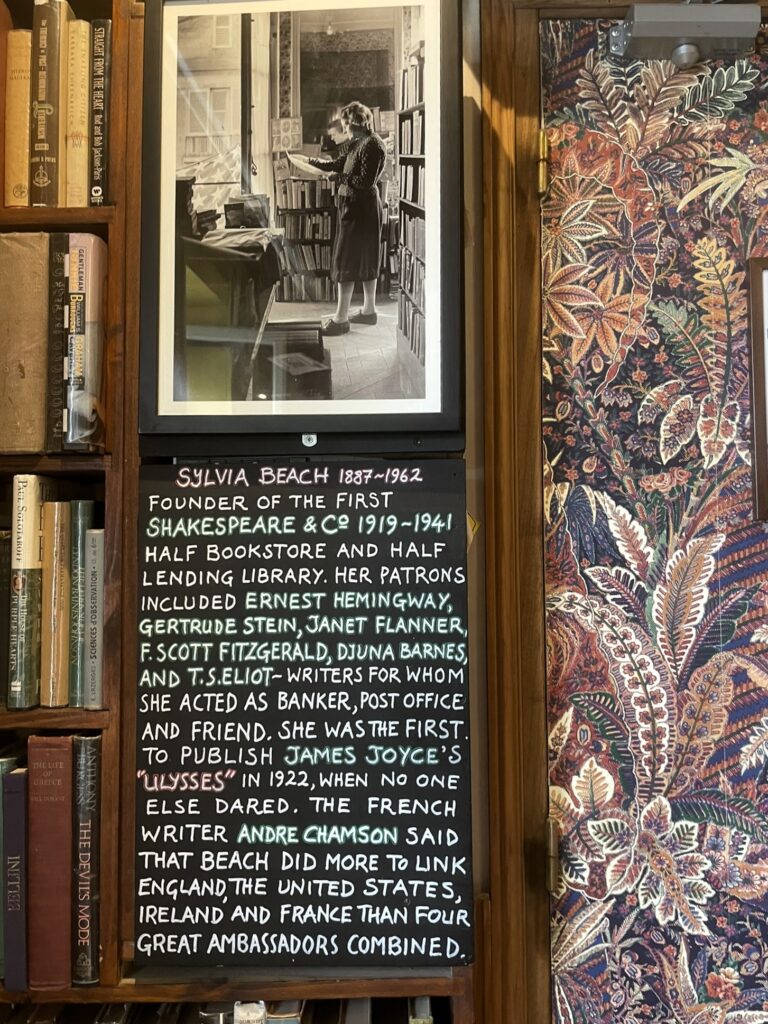 STRAIGHT FROM THE HEART Rod and Bob Jackson-Paris
GENTLEMAN
PAUL SOLOTAROFF
The House of
PURPLE HEARTS
SCIENCE OBSERVATION
THE LIFE OF
GREECE
WILL DURANT
CELLINI
ANTHONY
THE DEVIL'S MODE
SYLVIA BEACH 1887~1962
FOUNDER OF THE FIRST
SHAKESPEARE & Cº 1919~1941
HALF BOOKSTORE AND HALF
LENDING LIBRARY. HER PATRONS
INCLUDED ERNEST HEMINGWAY,
GERTRUDE STEIN, JANET FLANNER,
F. SCOTT FITZGERALD, DJUNA BARNES,
AND T.S. ELIOT~ WRITERS FOR WHOM
SHE ACTED AS BANKER, POST OFFICE
AND FRIEND. SHE WAS THE FIRST.
TO PUBLISH JAMES JOYCE'S
"ULYSSES" IN 1922, WHEN NO ONE
ELSE DARED. THE FRENCH
WRITER ANDRE CHAMSON SAID
THAT BEACH DID MORE TO LINK
ENGLAND, THE UNITED STATES,
IRELAND AND FRANCE THAN FOUR
GREAT AMBASSADORS COMBINED.